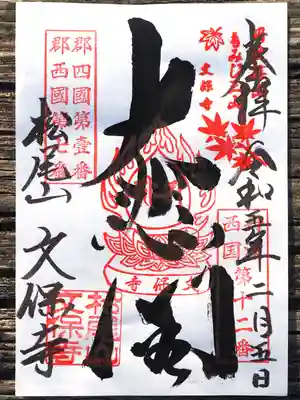 奉拝
令和五年二月五日
もみじ
文保寺
西国第十二番
大悲閣
文保寺
郡四國第壹番
郡西國第七番
松尾山
文保寺
松尾山
文保寺